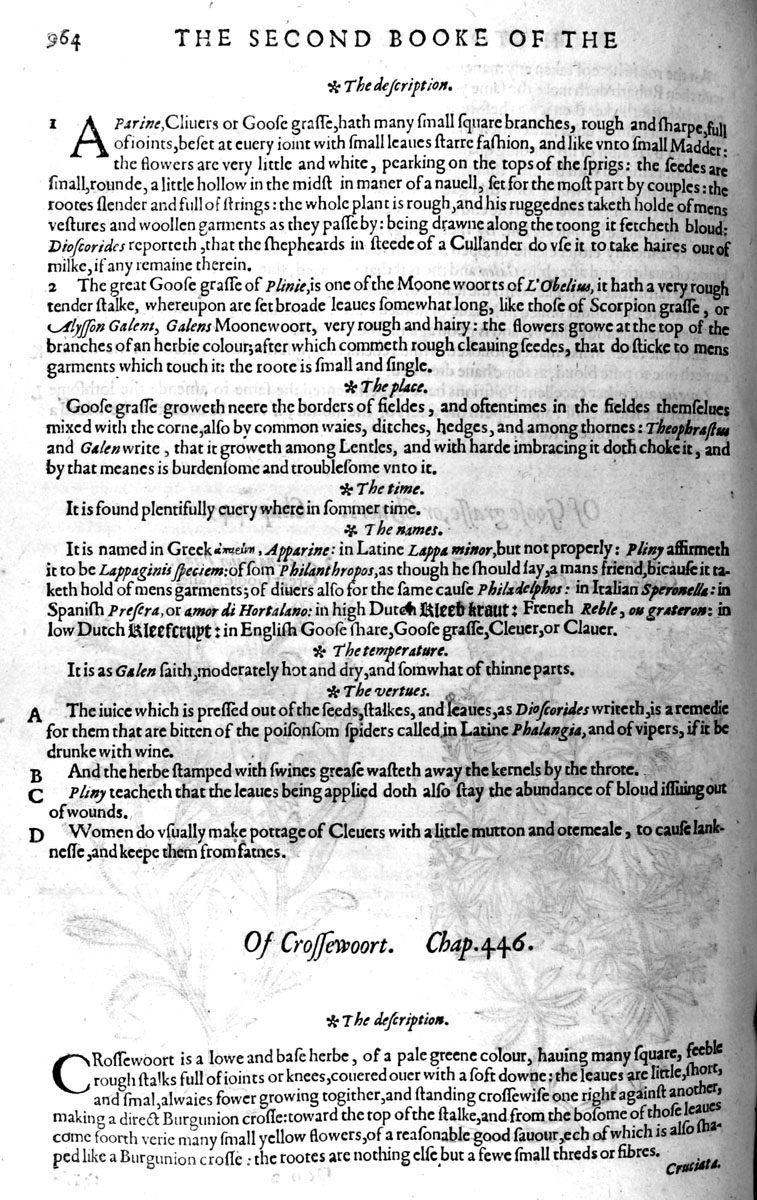 964 THE SECOND BOOKE OF THE
✻ The deſcription.
1 AParine, Cliuers or Gooſe graſſe, hath many ſmall ſquare branches, rough and ſharpe, full
of ioints, beſet at euery ioint with ſmall leaues ſtarre faſhion, and like vnto ſmall Madder:
the flowers are very little and white, pearking on the tops of the ſprigs: the ſeedes are
ſmall, rounde, a little hollow in the midſt in maner of a nauell, ſet for the moſt part by couples: the
rootes ſlender and full of ſtrings: the whole plant is rough, and his ruggednes taketh holde of mens
veſtures and woollen garments as they paſſe by: being drawne along the toong it fetcheth bloud:
Dioſcorides reporteth, that the ſhepheards in ſteede of a Cullander do vſe it to take haires out of
milke, if any remaine therein.
2 The great Gooſe graſſe of Plinie, is one of the Moone woorts of L'Obelius, it hath a very rough
tender ſtalke, whereupon are ſet broade leaues ſomewhat long, like thoſe of Scorpion graſſe, or
Alyſſon Galeni, Galens Moonewoort, very rough and hairy: the flowers growe at the top of the
branches of an herbie colour; after which commeth rough cleauing ſeedes, that do ſticke to mens
garments which touch it: the roote is ſmall and ſingle.
✻ The place.
Gooſe graſſe groweth neere the borders of fieldes, and oftentimes in the fieldes themſelues
mixed with the corne, alſo by common waies, ditches, hedges, and among thornes: Theophraſtus
and Galen write, that it groweth among Lentles, and with harde imbracing it doth choke it, and
by that meanes is burdenſome and troubleſome vnto it.
✻ The time.
It is found plentifully euery where in ſommer time.
✻ The names.
It is named in Greek, Apparine: in Latine Lappa minor, but not properly: Pliny affirmeth
it to be Lappaginis ſpeciem: of ſom Philanthropos, as though he ſhould ſay, a mans friend, bicauſe it ta-
keth hold of mens garments; of diuers alſo for the ſame cauſe Philadelphos: in Italian Speronella: in
Spaniſh Preſera, or amor di Hortalano: in high Dutch Kleeb kraut: French Reble, ou grateron: in
low Dutch Kleefcrupt: in Engliſh Gooſe ſhare, Gooſe graſſe, Cleuer, or Clauer.
✻ The temperature.
It is as Galen ſaith, moderately hot and dry, and ſomwhat of thinne parts.
✻ The vertues.
A The iuice which is preſſed out of the ſeeds, ſtalkes, and leaues, as Dioſcorides writeth, is a remedie
for them that are bitten of the poiſonſom ſpiders called in Latine Phalangia, and of vipers, if it be
drunke with wine.
B And the herbe ſtamped with ſwines greaſe waſteth away the kernels by the throte.
C Pliny teacheth that the leaues being applied doth alſo ſtay the abundance of bloud iſſuing out
of wounds.
D Women do vſually make pottage of Cleuers with a little mutton and otemeale, to cauſe lank-
neſſe, and keepe them from fatnes.
Of Croſſewoort. Chap. 446.
✻ The deſcription.
CRoſſewoort is a lowe and baſe herbe, of a pale greene colour, hauing many ſquare, feeble
rough ſtalks full of ioints or knees, couered ouer with a ſoft downe; the leaues are little, ſhort,
and ſmal, alwaies fower growing togither, and ſtanding croſſewiſe one right againſt another,
making a direct Burgunion croſſe: toward the top of the ſtalke, and from the boſome of thoſe leaues
come foorth verie many ſmall yellow flowers, of a reaſonable good ſauour, ech of which is alſo ſha-
ped like a Burgunion croſſe: the rootes are nothing elſe but a fewe ſmall threds or fibres.
Cruciata.